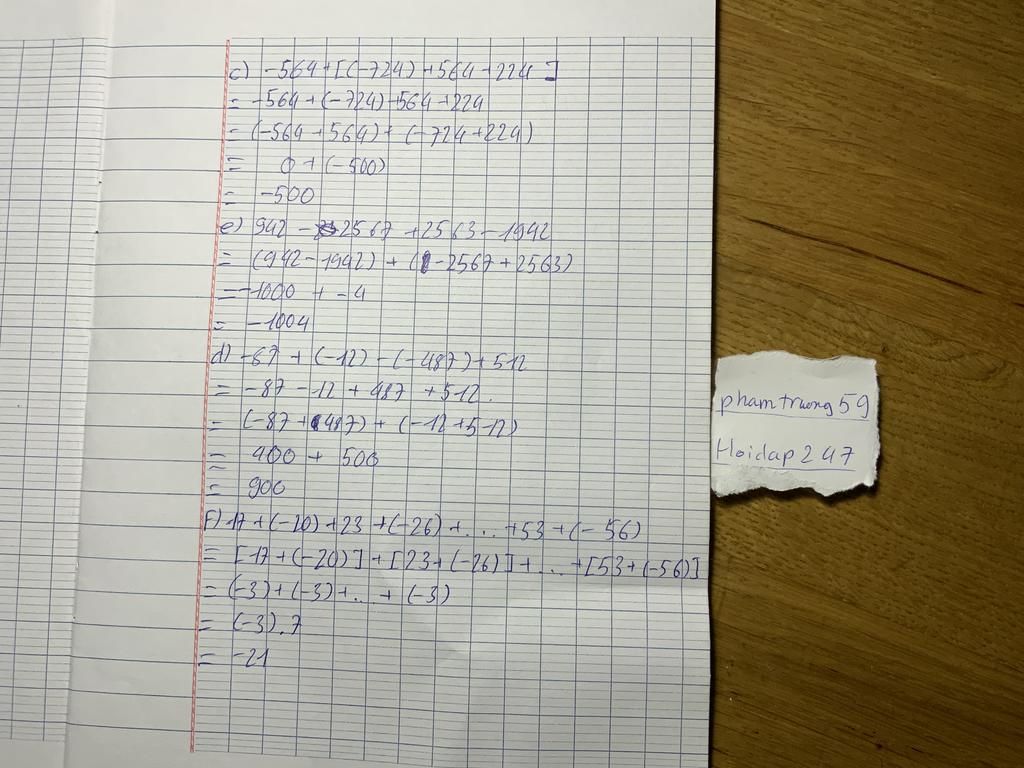 c) -564+[(-724)+564+224]
= -564+(-724)+564+224
= (-564+564)+(-724+224)
= 0+(-500)
= -500
e) 942 - 2567 +2563-1942
= (942-1942) + (-2567+2563)
= -1000 + -4
= -1004
d) -87 + (-12) - (-487) + 512
= -87 - 12 + 487 + 512.
= (-87 + 487) + (-12+512)
= 400 + 500
= 900
F) 17 +(-20) +23 +(-26) +... +53 +(-56)
= [17+(-20)] +[23+(-26)] + ... +[53+(-56)]
= (-3)+(-3)+...+ (-3)
= (-3).7
= -21
phamtruong59
Hoidap247